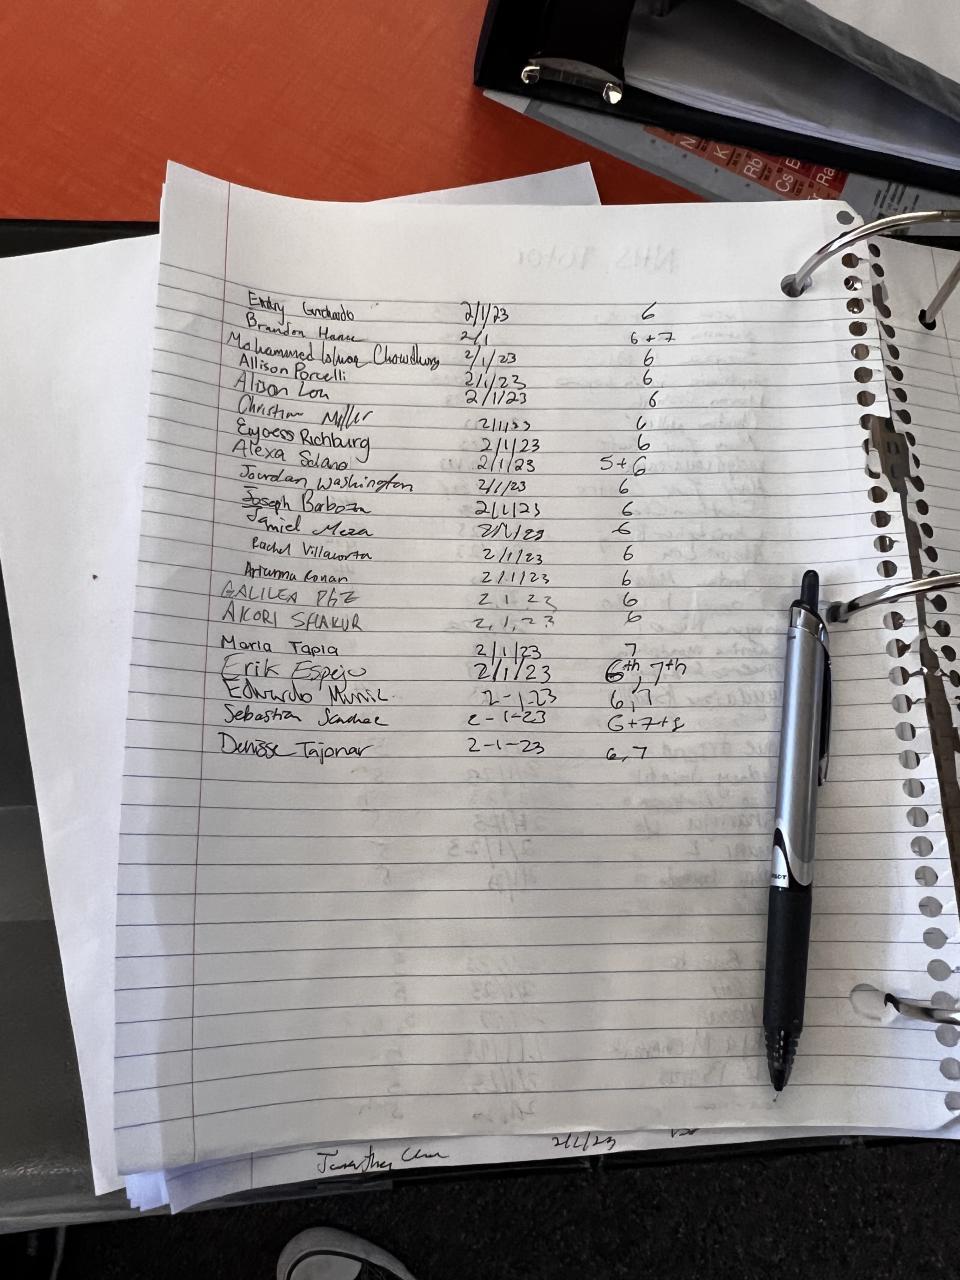 Grchado 2/1/23 6
Brandon 2/1 6 + 7
Mohammed Chowdhury 2/1/23 6
Allison Porcelli 2/1/23 6
Alison 2/1/23 6
Christian Miller 2/1/23 6
Richburg 2/1/23 6
Alexa Solano 2/1/23 5+6
Jourdan Washington 2/1/23 6
Joseph Barboza 2/1/23 6
Jamiel Meza 2/1/23 6
Rachel Villacorta 2/1/23 6
Arianna Ronan 2/1/23 6
GALILEA PAZ 2, 1, 23 6
AKORI SHAKUR 2, 1, 23 6
Maria Tapia 2/1/23 7
Erik Espejo 2/1/23 6th, 7th
Edwardo 2-1-23 6,7
Sebastian 2-1-23 6+7+8
Denisse Tajonar 2-1-23 6,7
2/1/23
N
K
Rb
Cs
Ra